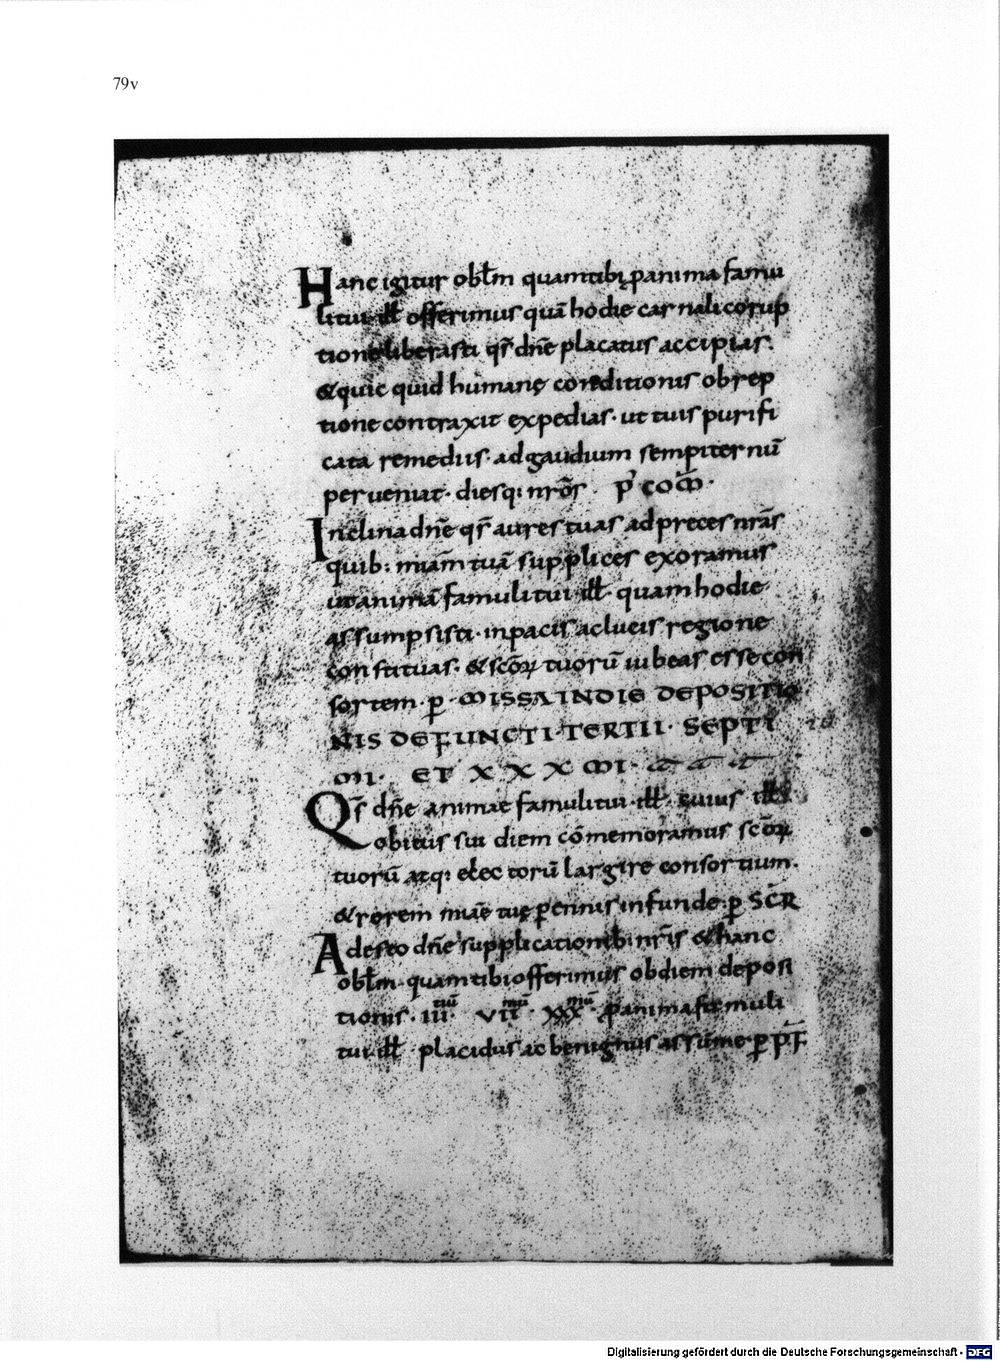 79v
Hanc igitur obłm quamtibi panima famu
litui · iƚƚ offerimus quā hodie carnali corup
tione liberasti qs̄ dn̄e placatus accipias:
& quic quid humanę conditionis obrep
tione contraxit expedias · ut tuis purifi
cata remediis · ad gaudium sempiternū
perueniat · diesq: nrōs · p̄ cōm̄ ·
Inclina dn̄e qs̄ aures tuas ad preces nrās
quib: miām tuā supplices exoramus
ut animā famuli tui · iƚƚ · quam hodie
assumpsisti · in pacis ac lucis regione
constituas · & scōꝝ tuorū iubeas esse con
sortem · ꝑ · MISSA IN DIE DEPOSITIO
NIS DEFUNCTI · TERTII · SEPTI
MI · ET XXXMI ·
Qs̄ dn̄e animae famuli tui · iƚƚ · cuius
obitus sui diem cōmemoramus scōꝝ
tuorū atq: electorū largire consortium ·
& rorem miāę tuę ꝑennis infunde · ꝑ SCR
Adesto dn̄e supplicationib: nrīs & hanc
obłm · quam tibi offerimus ob diem deposi
tionis · III tiū · VII mū · XXX mū · ꝑ anima famuli
tui · iƚƚ · placidus ac benignus assūme · ꝑ P̄F̄
Digitalisierung gefördert durch die Deutsche Forschungsgemeinschaft - DFG